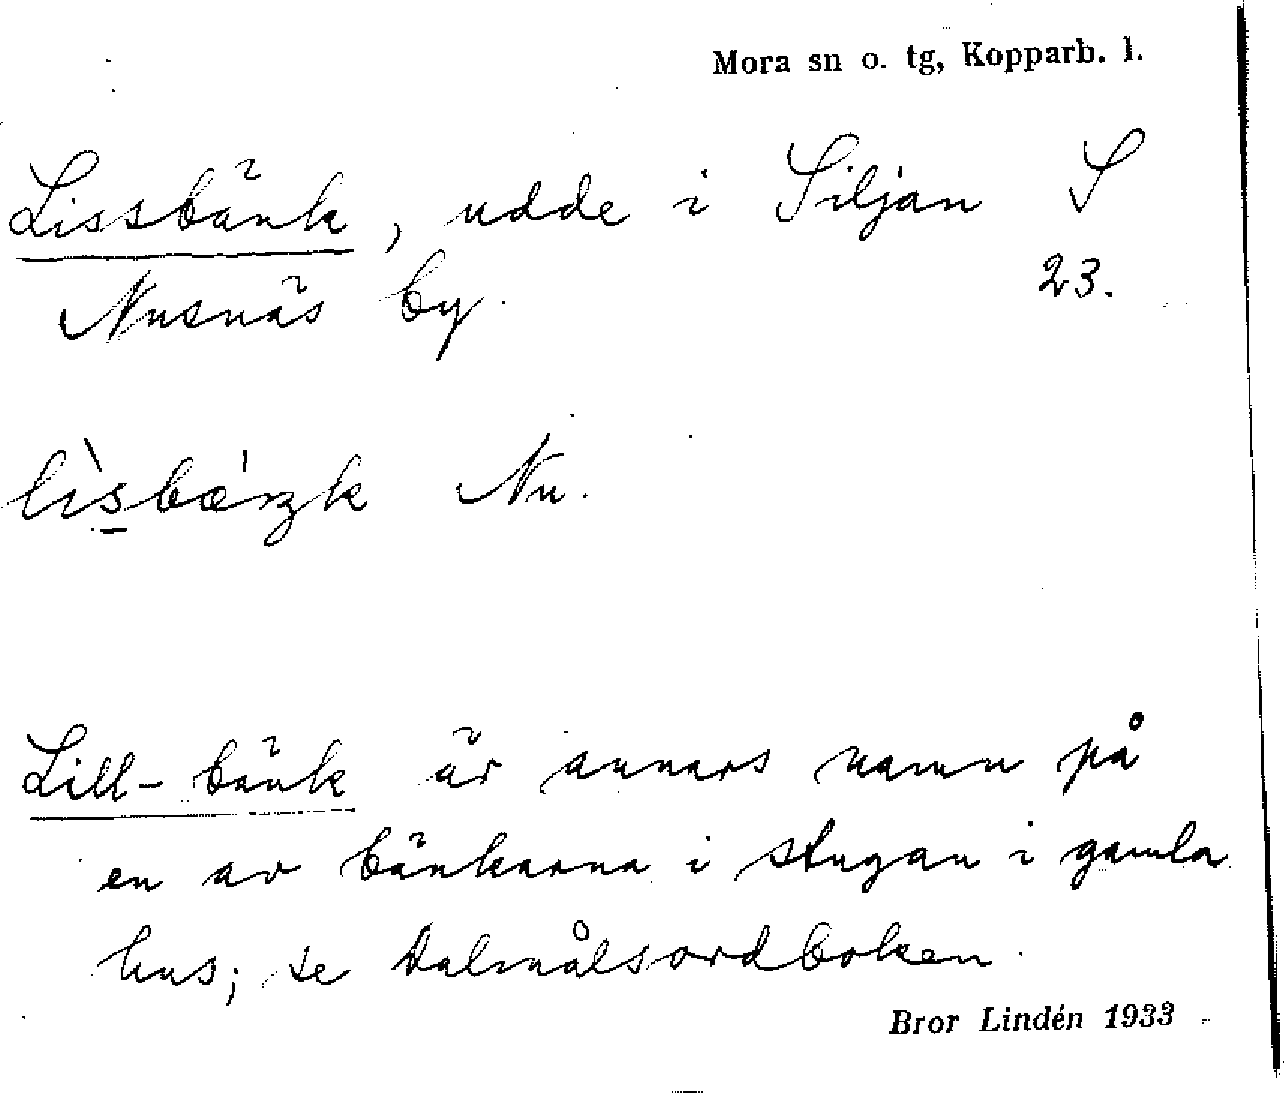 Mora sn o. tg, Kopparb. l.
Lissbänk, udde i Siljan S
Nusnäs by. 23.
lìsbæ̀ŋk Nu.
Lill-bänk är annars namn på
en av bänkarna i stugan i gamla
hus; se Dalmålsordboken.
Bror Lindén 1933